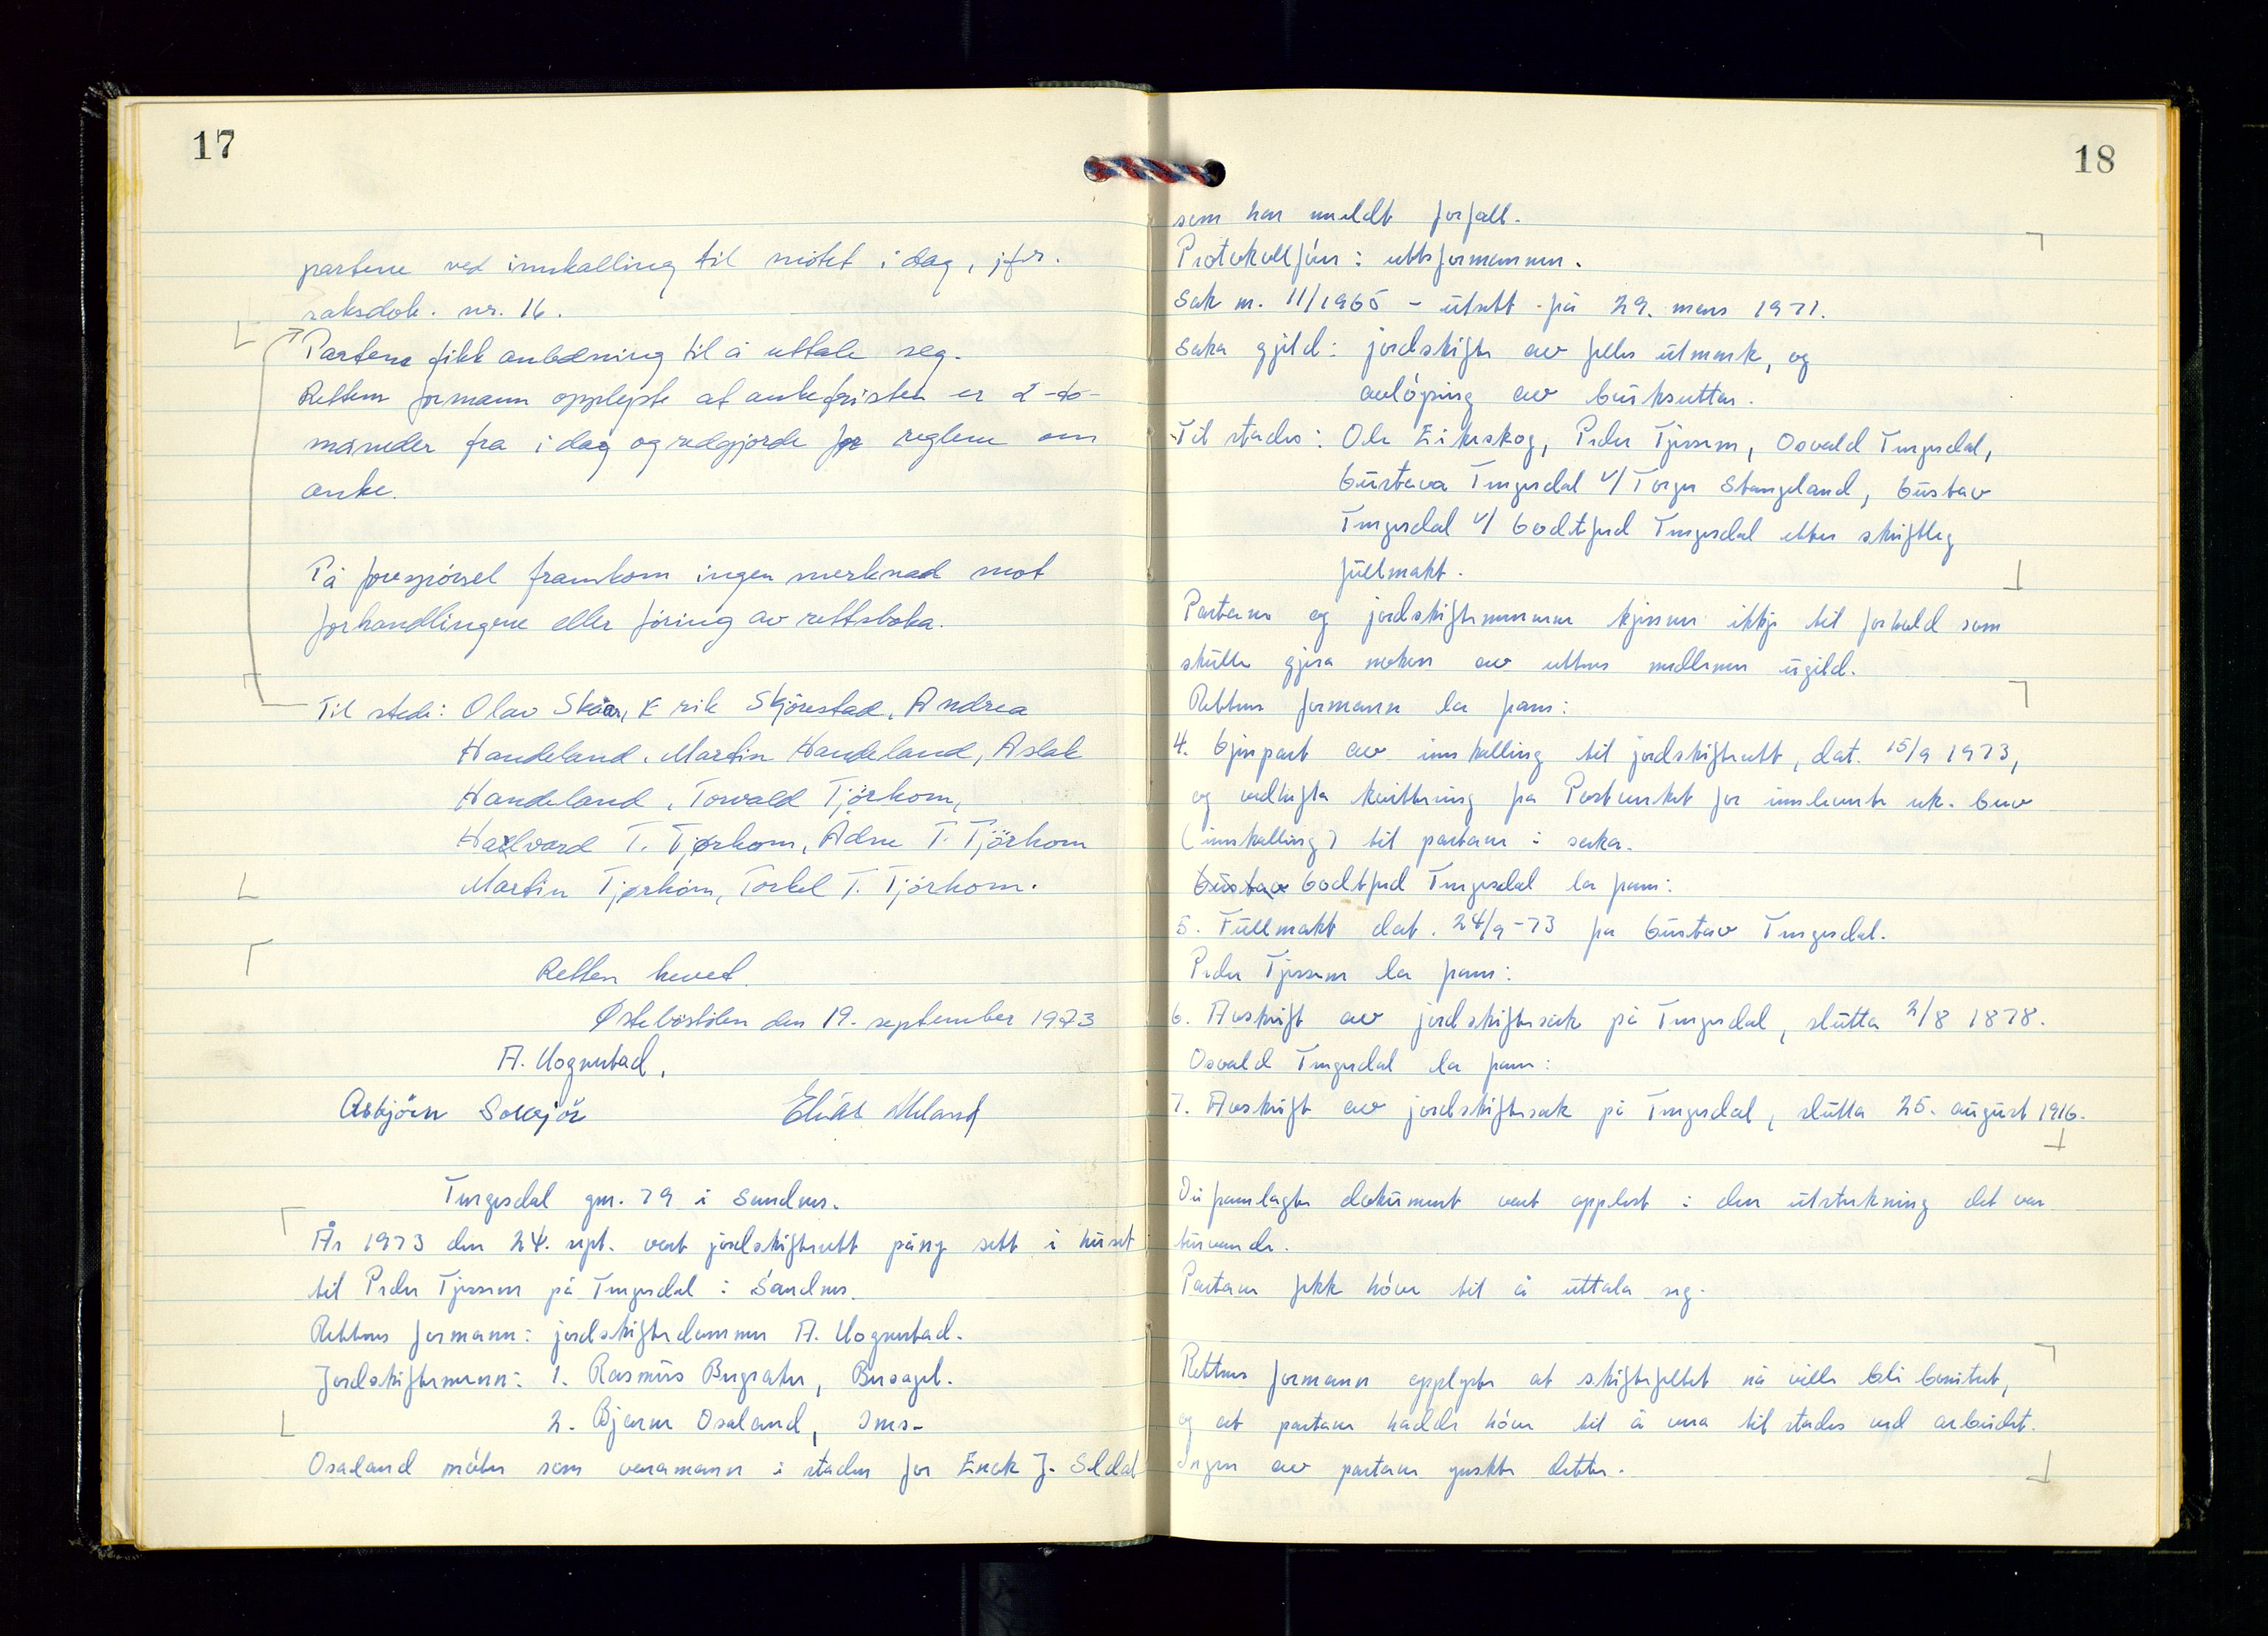 17
partene ved innkalling til møtet i dag, jfr.
saksdok. nr. 16.
Partene fikk anledning til å uttale seg.
Rettens formann opplyste at ankefristen er 2 -to-
måneder fra i dag og redgjorde for reglene om
anke.
På forespørsel framkom ingen merknad mot
forhandlingene eller føring av rettsboka.
Til stede: Olav Skåar, Erik Skjörestad, Andrea
Handeland, Martin Handeland, Aslak
Handeland, Torvald Tjörhom,
Hallvard T. Tjørhom, Ådne T. Tjörhom
Martin Tjørhom, Torkel T. Tjörhom.
Retten hevet.
den 19. september 1973
A. Mognestad,
Asbjörn
Elias
Tengesdal gnr. 79 i Sandnes.
År 1973 den 24. sept. vart jordskifterett påny sett i huset
til Peder Tjessem på Tengesdal i Sandnes.
Rettens formann: jordskiftedommer A. Mognestad.
Jordskiftemenn: 1. Rasmus Bersagel.
2. Bjarne Osaland, Ims-
Osaland møter som varamann i staden for Enok J. Seldal
18
som har meldt forfall.
Protokollførar: rettsformannen.
Sak nr. 11/1965 - utsett frå 29. mars 1971.
Saka gjeld: jordskifte av felles utmark, og
avløysing av bruksretter.
Til stades: Ole Eikeskog, Peder Tjessem, Osvald Tengesdal,
Gustava Tengesdal v/ Torger Stangeland, Gustav
Tengesdal v/ Godtfred Tengesdal etter skriftleg
fullmakt.
Partane og jordskiftemennene kjenner ikkje til forhold som
skulle gjera nokon av rettens medlemer ugild.
Rettens formann la fram:
4. Gjenpart av innkalling til jordskifterett, dat. 15/9 1973,
og vedhefta kvittering frå Postverket for innleverte rek. brev
(innkalling) til partane i saka.
Gustav Godtfred Tengesdal la fram:
5. Fullmakt dat. 24/9-73 frå Gustav Tengesdal.
Peder Tjessem la fram:
6. Avskrift av jordskiftesak på Tengesdal, slutta 2/8 1878.
Osvald Tengesdal la fram:
7. Avskrift av jordskiftesak på Tengesdal, slutta 25. august 1916.
Dei framlagte dokument vart opplest i den utstrekning det var
turvande.
Partane fekk høve til å uttala seg.
Rettens formann opplyste at skiftefeltet nå ville bli bonitert,
og at partane hadde høve til å vera til stades ved arbeidet.
Ingen av partane ynskte dette.